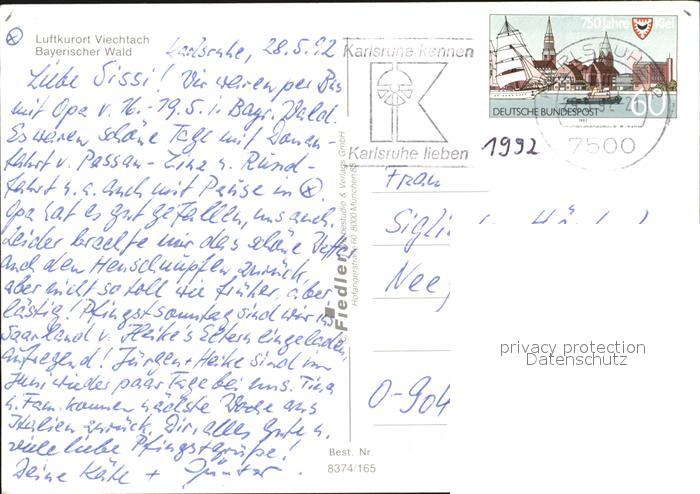 Luftkurort Viechtach
Bayerischer Wald
Karlsruhe, 28.5.92
Liebe Sissi! Wir waren per Bus
mit Opa v. 16.-19.5. i. Bayr. Wald.
Es waren schöne Tage mit Donau-
fahrt v. Passau-Linz u. Rund-
fahrt u. a. auch mit Pause in ⊗.
Opa hat es gut gefallen, uns auch.
Leider brachte mir das schöne Wetter
auch den Heuschnupfen zurück,
aber nicht so toll wie früher, aber
lästig! Pfingstsonntag sind wir ins
Saarland v. Heike's Eltern eingeladen,
aufregend! Jürgen + Heike sind im
Juni wieder paar Tage bei uns. Tina
u. Fam. kommen nächste Woche aus
Italien zurück. Dir alles Gute u.
viele liebe Pfingstgrüße!
Deine Käte + Günter.
Fiedler
Hofangerstraße 60 8000 München 83
Best. Nr.
8374/165
Karlsruhe kennen
Karlsruhe lieben
750 Jahre Kiel
DEUTSCHE BUNDESPOST
60
1992
KARLSRUHE
7500
1992
Frau
Sigli
Nee
O-904
privacy protection
Datenschutz